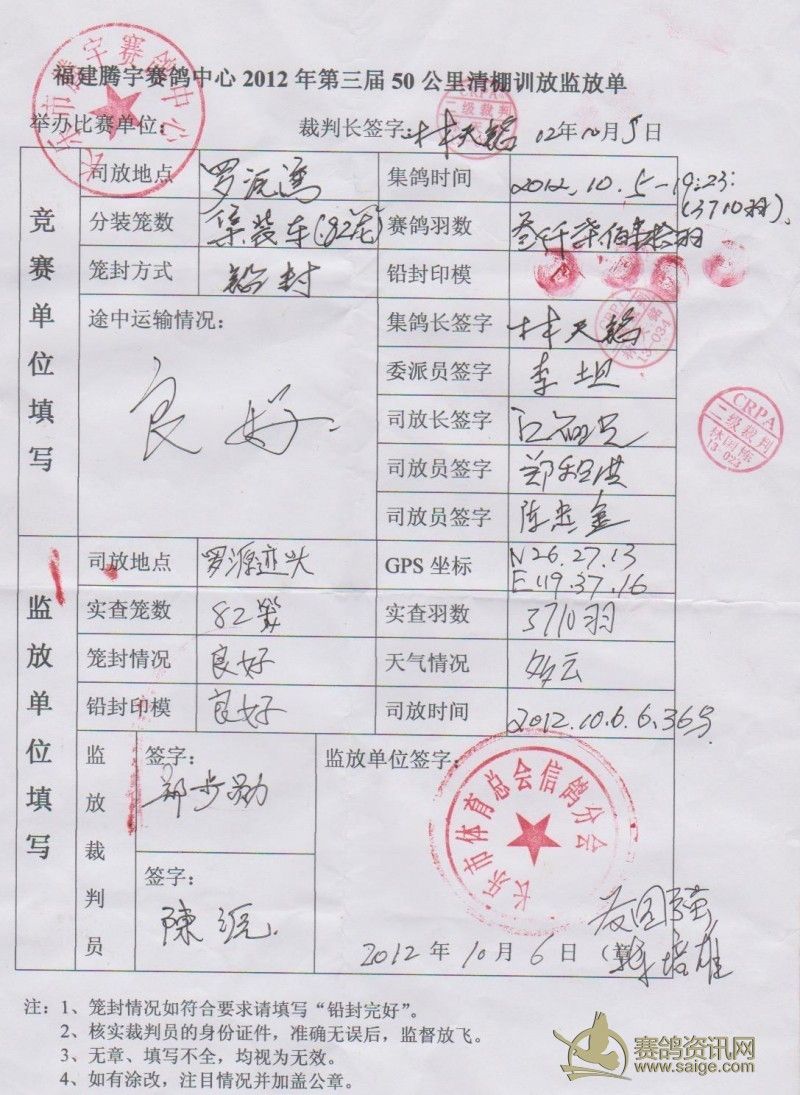 福建腾宇赛鸽中心 2012 年第三届 50 公里清棚训放监放单
举办比赛单位: 裁判长签字: 林天铭 12年10月5日
竞赛单位填写
司放地点 罗源湾 集鸽时间 2012.10.5-19:23:
(3710羽)
分装笼数 集装车(82笼) 赛鸽羽数 叁仟柒佰壹拾羽
笼封方式 铅封 铅封印模
途中运输情况: 集鸽长签字 林天铭
良好
委派员签字 李坦
司放长签字
司放员签字
司放员签字 陈忠金
监放单位填写
司放地点 罗源 GPS 坐标 N26.27.13
E119.37.16
实查笼数 82笼 实查羽数 3710羽
笼封情况 良好 天气情况 多云
铅封印模 良好 司放时间 2012.10.6.6.36分
监放裁判员
签字: 监放单位签字:
郑步勋
签字:
陳
2012 年 10 月 6 日 (章)
注: 1、笼封情况如符合要求请填写“铅封完好”。
2、核实裁判员的身份证件，准确无误后，监督放飞。
3、无章、填写不全，均视为无效。
4、如有涂改，注目情况并加盖公章。
长乐市腾宇赛鸽中心
CRPA
二级裁判
林天铭
13-034
CRPA
二级裁判
林国栋
13-023
长乐市体育总会信鸽分会
赛鸽资讯网
www.saige.com